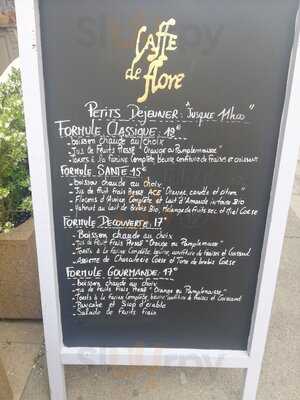 Caffe
de flore
Petits Dejeuner "Jusque 11h00"
Formule Classique: 12€
- Boisson chaude au choix
- Jus de Fruits Pressé "Orange ou Pamplemousse"
- Toasts à la farine Complète beurre confiture de fraises et croissant
Formule Santé 15€
- Boisson chaude au choix
- Jus de Fruit Frais Pressé ACE "Orange, carotte et citron"
- Flocons d'Avoine Complète et Lait d'Amande infusion Bio
- Yahourt au lait de Brebis Bio, Mélange de fruits sec et Miel Corse
Formule Decouverte: 17€
- Boisson chaude au choix
- Jus de Fruit Frais Pressé "Orange ou Pamplemousse"
- Toasts à la farine Complète beurre, confiture de fraises et Croissant
- Assiette de Charcuterie Corse et Tome de brebis Corse
Formule Gourmande: 17€
- boisson chaude au choix
- Jus de Fruits Frais Pressé "Orange ou Pamplemousse"
- Toasts à la farine Complète beurre, confiture de fraises et Croissant
- Pancake et Sirop d'érable
- Salade de Fruits frais